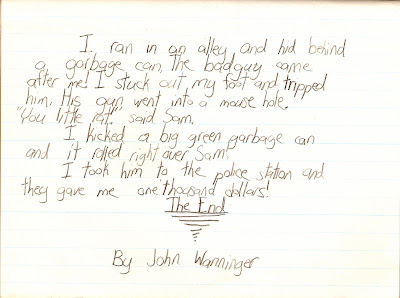 I ran in an alley and hid behind
a garbage can. The badguy came
after me! I stuck out my foot and tripped
him. His gun went into a mouse hole.
"You little rat!" said Sam.
I kicked a big green garbage can
and it rolled right over Sam.
I took him to the police station and
they gave me one thousand dollars!
The End
By John Wanninger